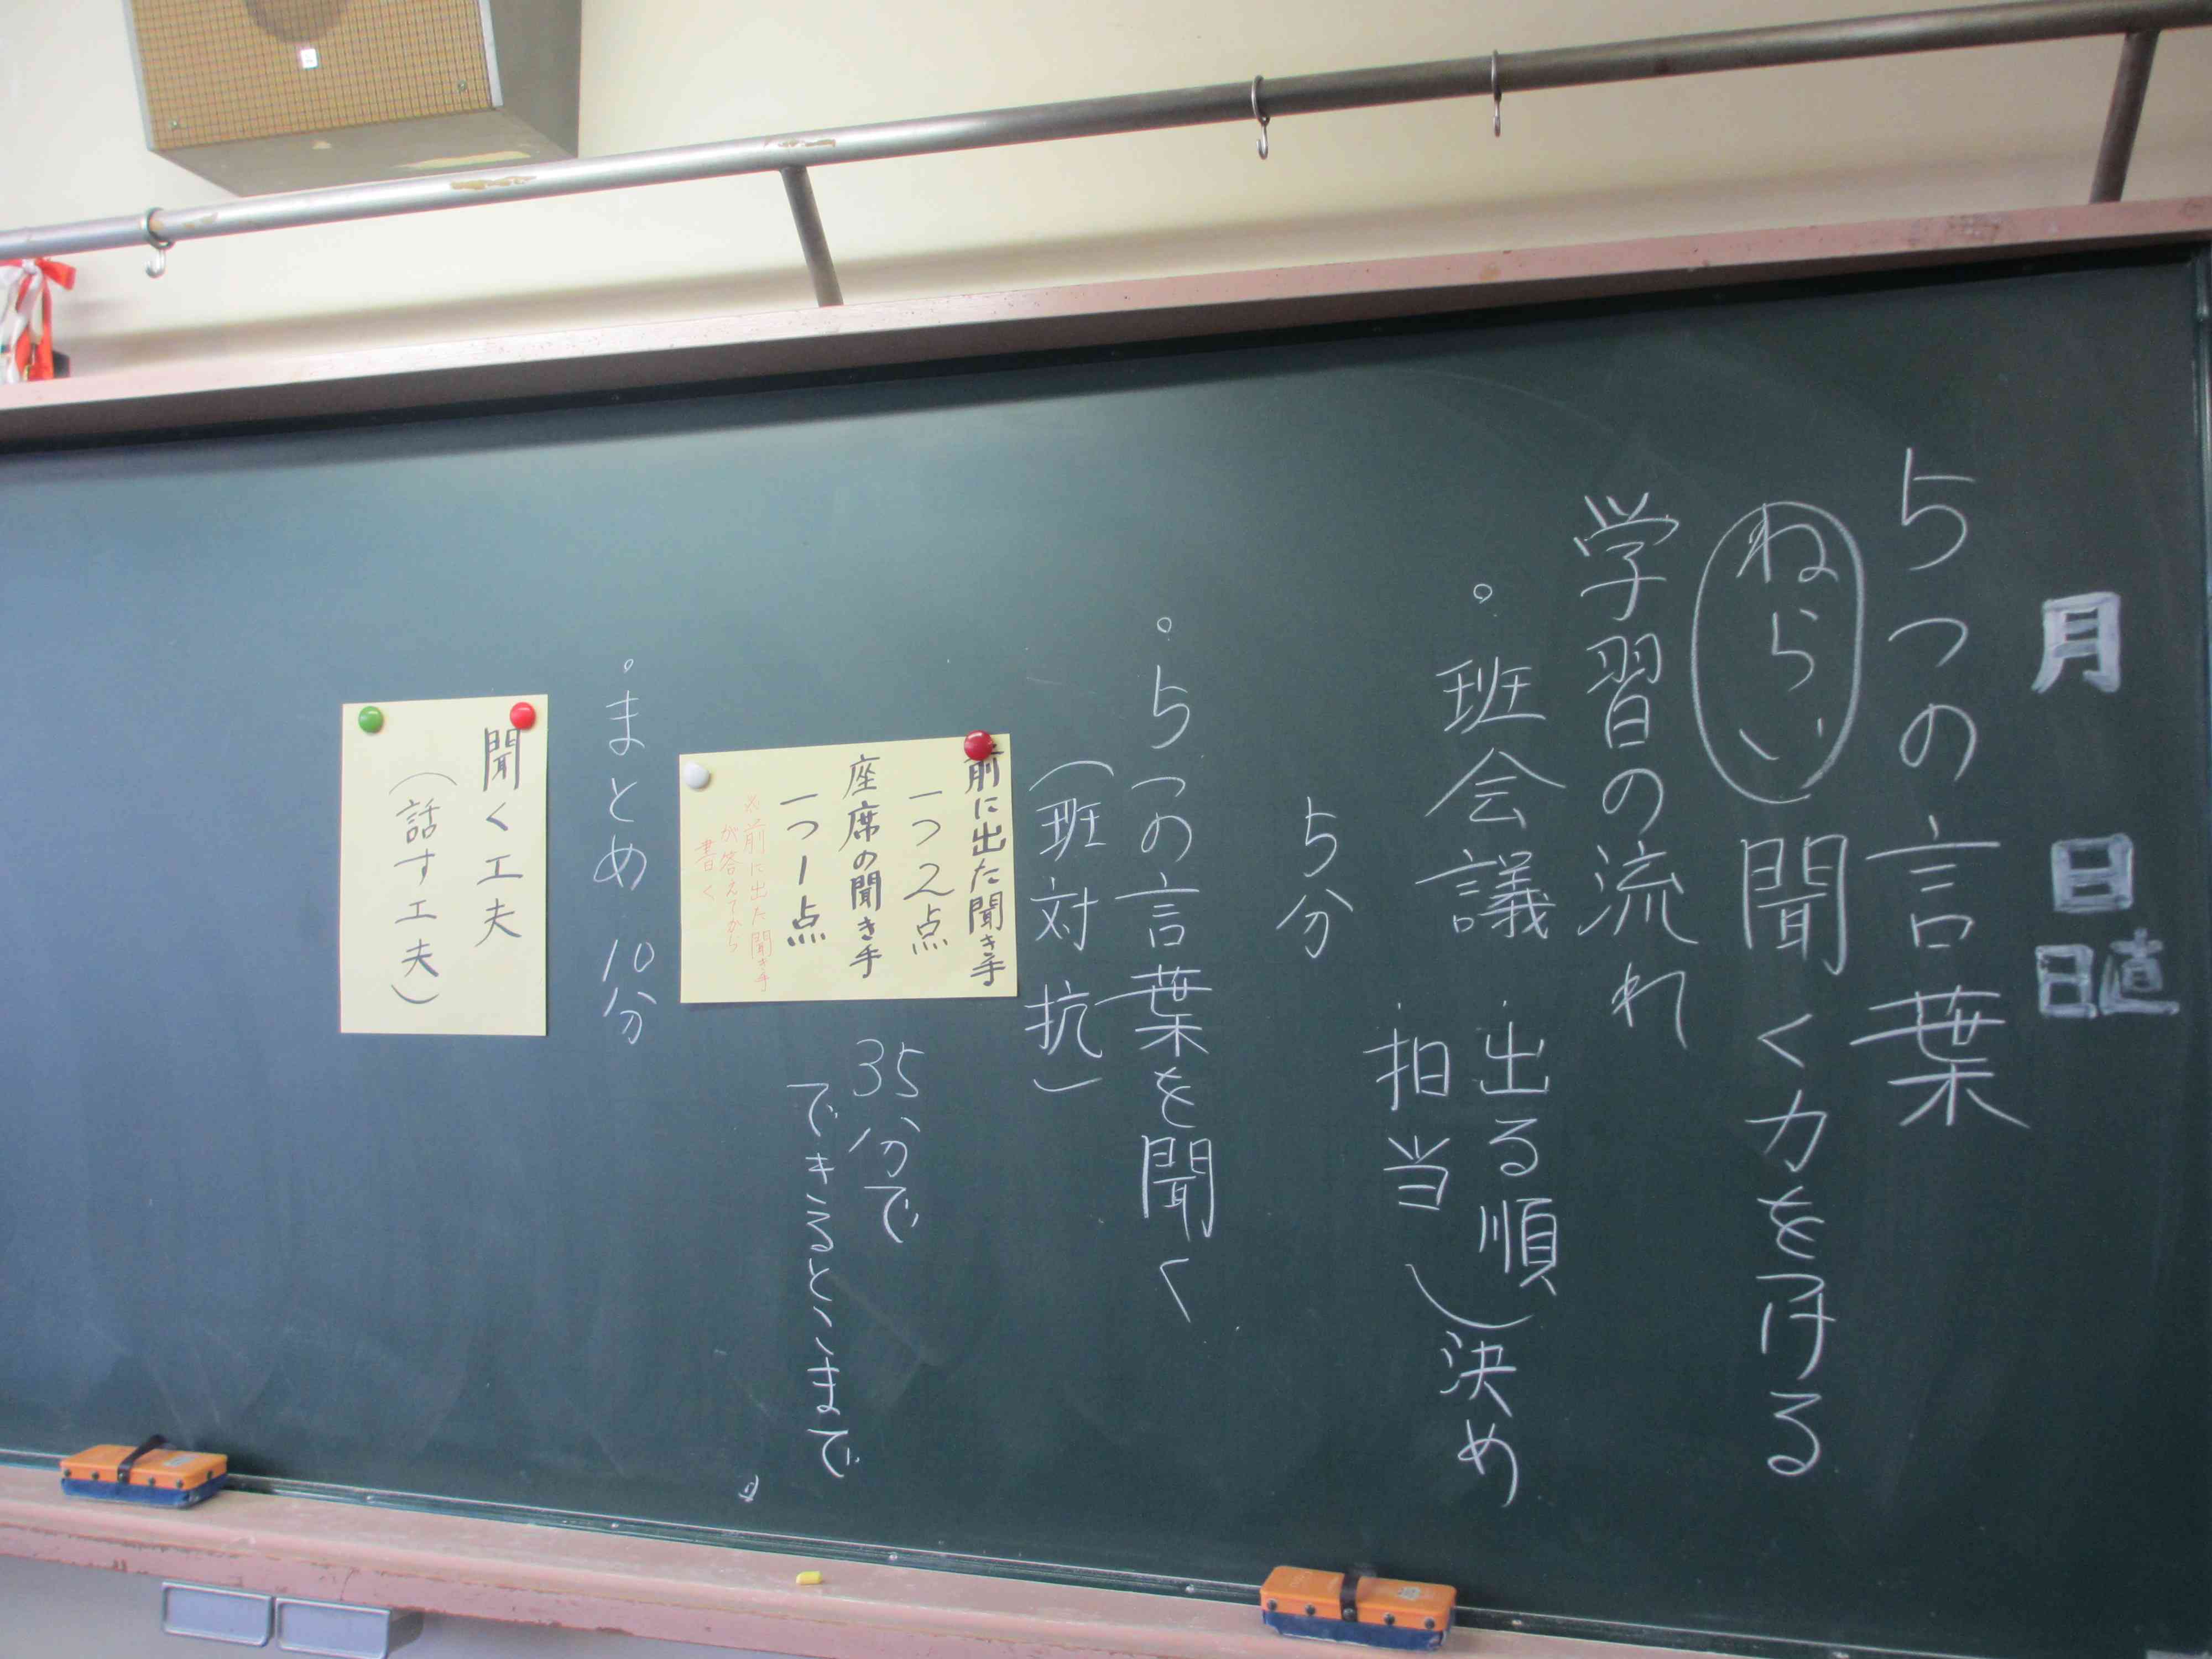 月 日
日直
5つの言葉
ねらい 聞く力を付ける
学習の流れ
。班会議 ・出る順
・担当
決め
5分
。5つの言葉を聞く
（班対抗）
前に出た聞き手
一つ2点
座席の聞き手
一つ1点
※前に出た聞き手
が答えてから
書く
35分で
できるところまで
。まとめ 10分
聞く工夫
（話す工夫）